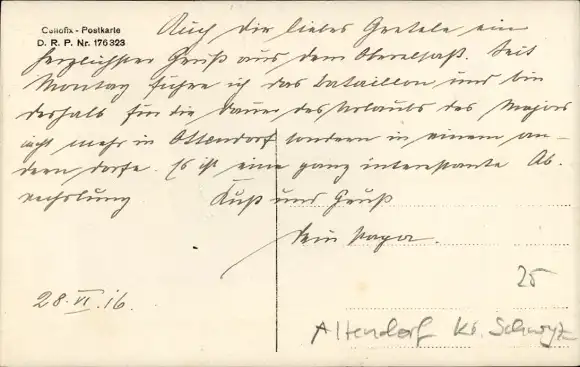 Cellofix - Postkarte
D. R. P. Nr. 176323
Auch Dir liebes Gretele ein
herzlichster Gruß aus dem Oberelsaß. Seit
Montag führe ich das Bataillon und bin
deshalb für die Dauer des Urlaubs des Majors
nicht mehr in Ottendorf sondern in einem an-
dern Dorfe. Es ist eine ganz interessante Ab-
wechslung Kuß und Gruß
Dein Papa.
28. VI. 16.
25
Altendorf Kt. Schwyz